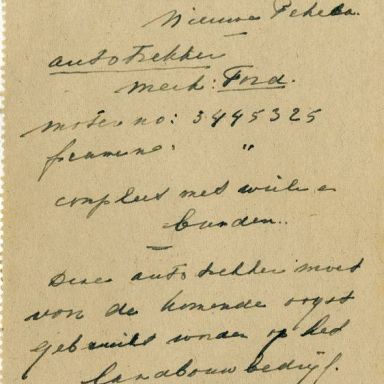 Nieuwe Pekela.
autotrekker
merk: Ford.
motor no: 3445325
frameno: "
compleet met wielen
banden..
Deze autotrekker moet
voor de komende oogst
gebruikt worden op het
landbouwbedrijf.